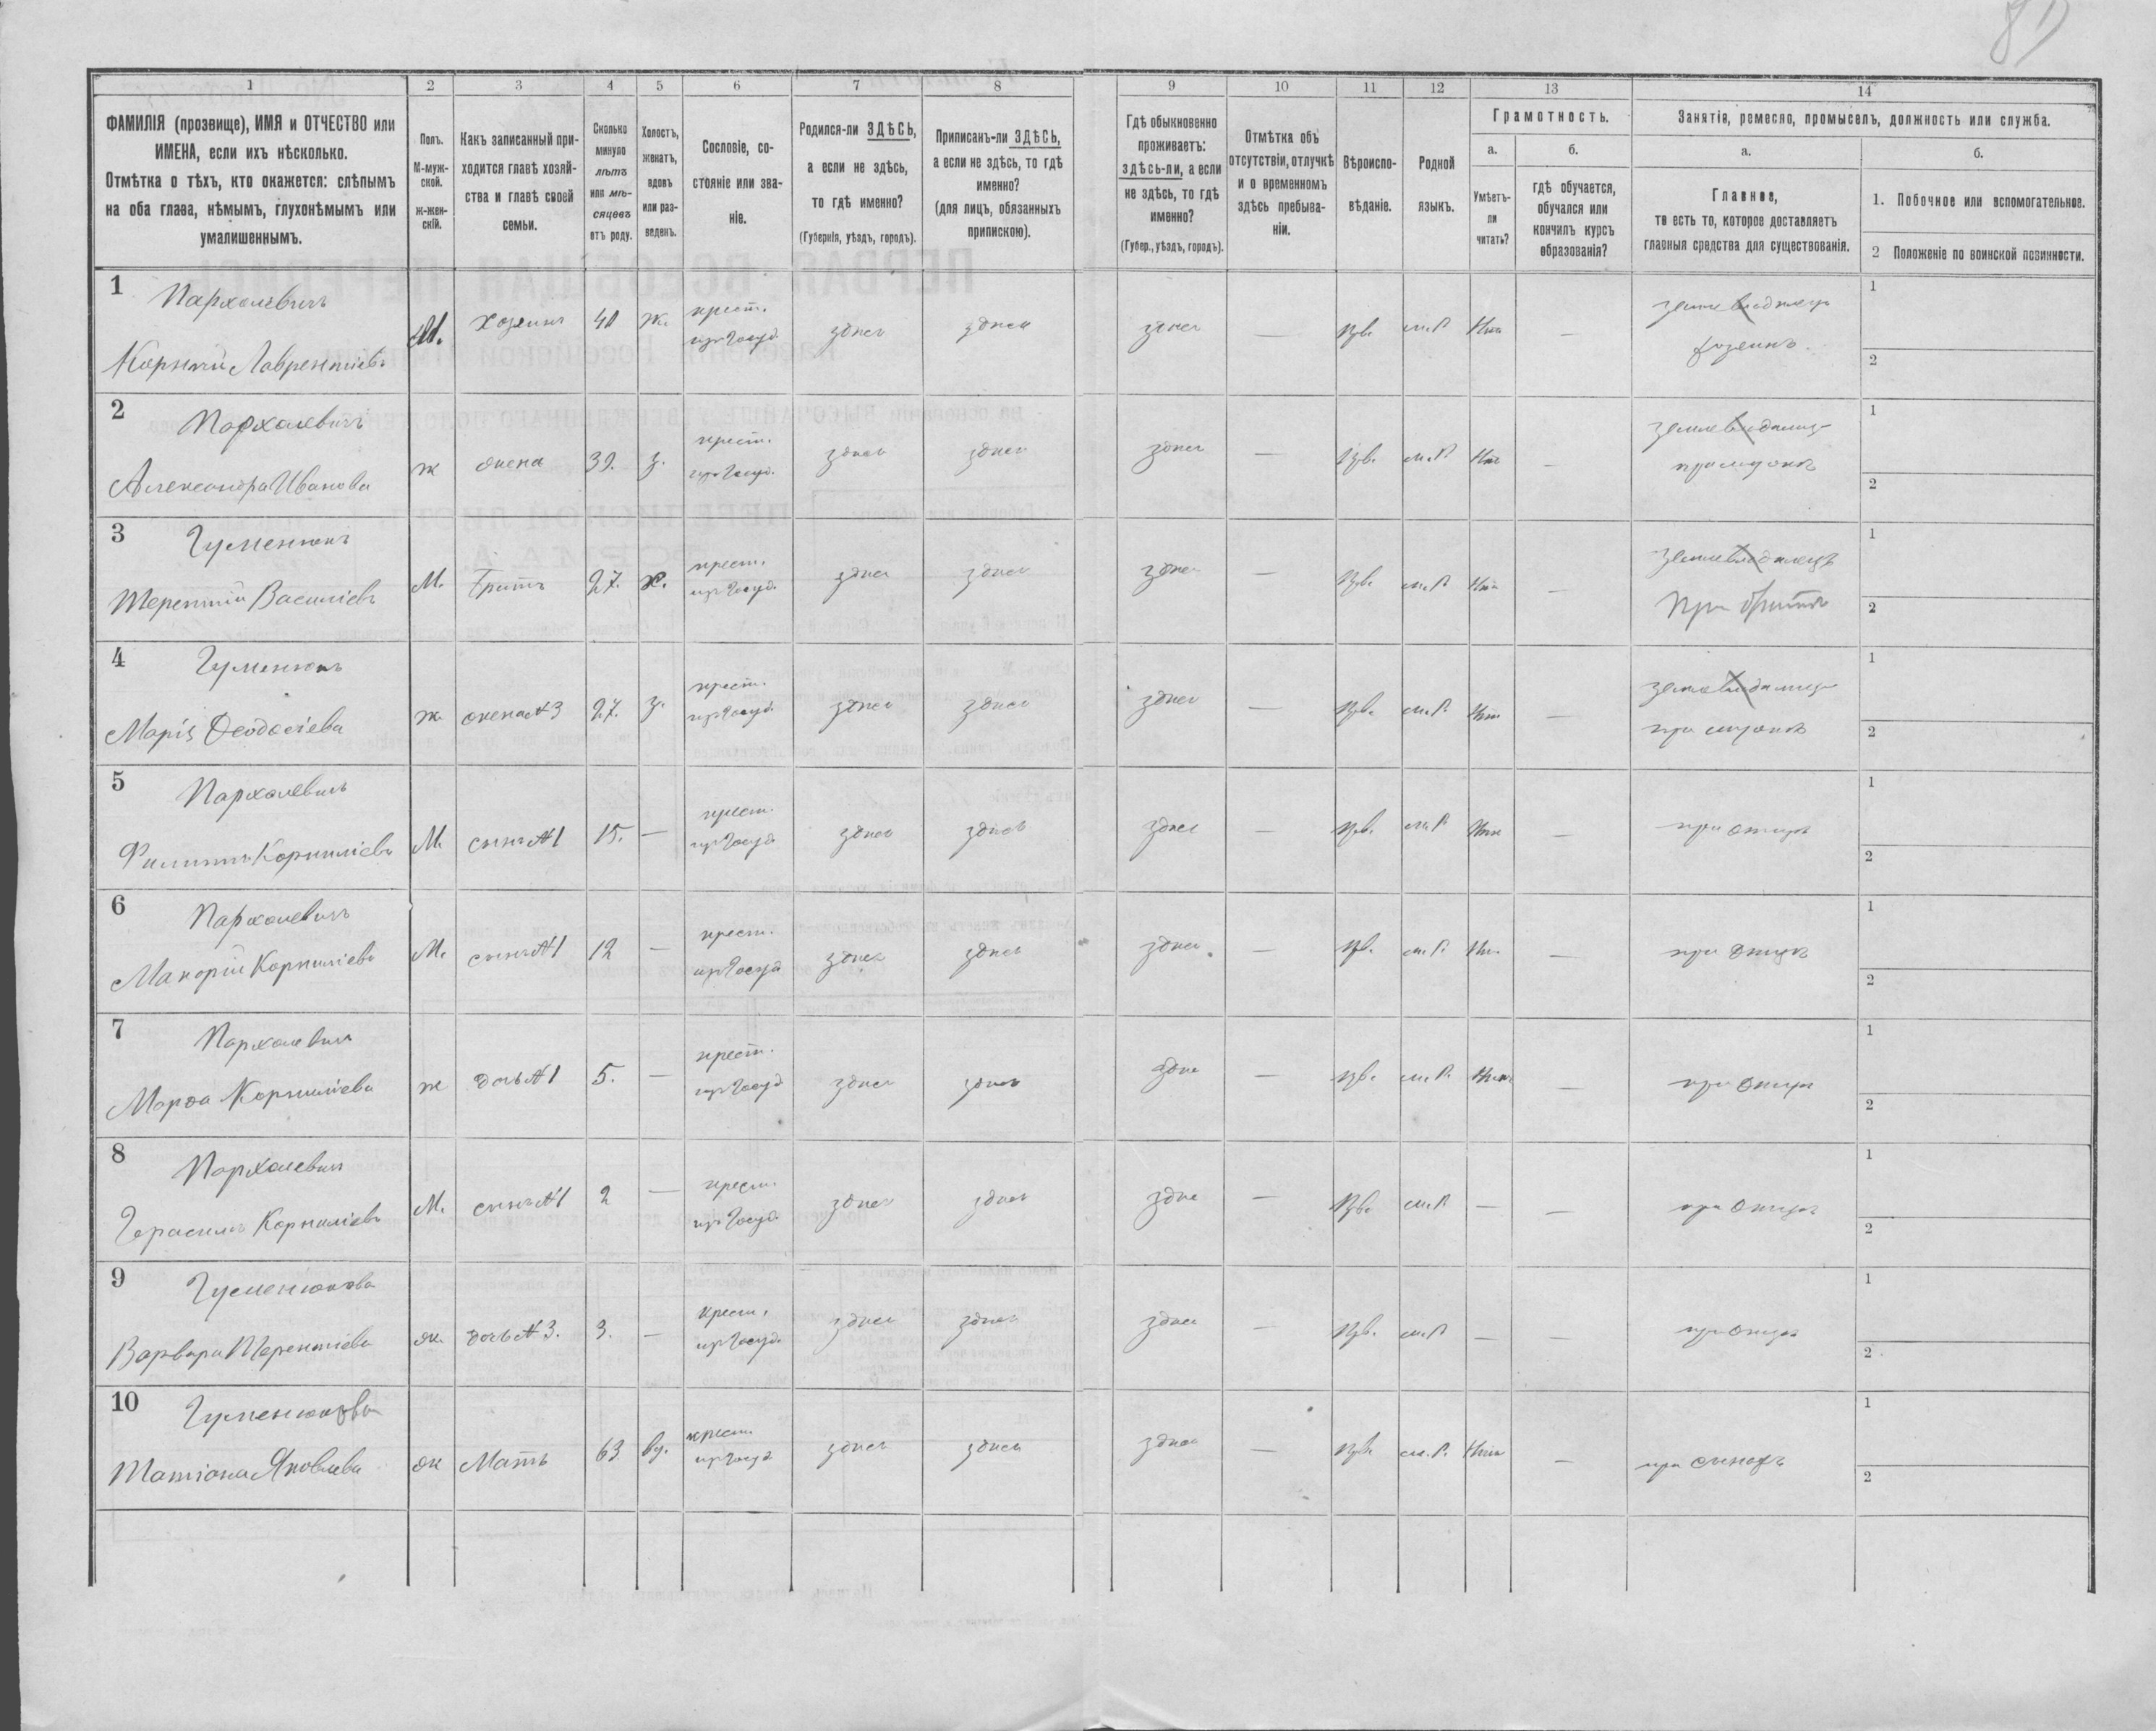 81)
1 2 3 4 5 6 7 8 9 10 11 12 13 14
ФАМИЛІЯ (прозвище), ИМЯ и ОТЧЕСТВО или
ИМЕНА, если ихъ нѣсколько.
Отмѣтка о тѣхъ, кто окажется: слѣпымъ
на оба глаза, нѣмымъ, глухонѣмымъ или
умалишеннымъ.
Полъ.
М-муж-
ской.
ж-жен-
скій.
Какъ записанный при-
ходится главѣ хозяй-
ства и главѣ своей
семьи.
Сколько
минуло
лѣтъ
или мѣ-
сяцевъ
отъ роду.
Холостъ,
женатъ,
вдовъ
или раз-
веденъ.
Сословіе, со-
стояніе или зва-
ніе.
Родился-ли ЗДѢСЬ,
а если не здѣсь,
то гдѣ именно?
(Губернія, уѣздъ, городъ).
Приписанъ-ли ЗДѢСЬ,
а если не здѣсь, то гдѣ
именно?
(для лицъ, обязанныхъ
припискою).
Гдѣ обыкновенно
проживаетъ:
здѣсь-ли, а если
не здѣсь, то гдѣ
именно?
(Губер., уѣздъ, городъ).
Отмѣтка объ
отсутствіи, отлучкѣ
и о временномъ
здѣсь пребыва-
ніи.
Вѣроиспо-
вѣданіе.
Родной
языкъ.
Грамотность.
а.
Умѣетъ-
ли
читать?
б.
гдѣ обучается,
обучался или
кончилъ курсъ
образованія?
Занятіе, ремесло, промыселъ, должность или служба.
а.
Главное,
то есть то, которое доставляетъ
главныя средства для существованія.
б.
1. Побочное или вспомогательное.
2 Положеніе по воинской повинности.
1 Пархолевичъ
Корнилій Лаврентіевъ
М. Хозяинъ 40 ж. крест. здѣсь здѣсь здѣсь — Прв. м.Р. —
хозяинъ
1
2
2 Пархолевичъ
Александра Иванова
ж жена 39. з. крест. здѣсь здѣсь здѣсь — Прв. м.Р. —
1
2
3 Гуменюкъ
Терентій Василіевъ
М. Братъ 27. ж. крест. здѣсь здѣсь здѣсь — Прв. м.Р. —
При братѣ
1
2
4 Гуменюкъ
Марія Феодосіева
ж. жена №3 27. з. крест. здѣсь здѣсь здѣсь — Прв. м.Р. —
1
2
5 Пархолевичъ
Филиппъ Корниліевъ
М. сынъ №1 15. — крест. здѣсь здѣсь здѣсь — Прв. м.Р. —
при отцѣ
1
2
6 Пархолевичъ
Макарій Корниліевъ
М. сынъ №1 12 — крест. здѣсь здѣсь здѣсь — Прв. м.Р. —
при отцѣ
1
2
7 Пархолевичъ
Марѳа Корниліева
ж дочь №1 5. — крест. здѣсь здѣсь здѣсь — Прв. м.Р. —
при отцѣ
1
2
8 Пархолевичъ
Герасимъ Корниліевъ
М. сынъ №1 2 — крест. здѣсь здѣсь здѣсь — Прв. м.Р. — —
при отцѣ
1
2
9 Гуменюкова
Варвара Терентіева
ж. дочь №3. 3. — крест. здѣсь здѣсь здѣсь — Прв. м.Р. — —
при отцѣ
1
2
10 Гуменюкова
Татіана Яковлева
ж Мать 63 вд. крест. здѣсь здѣсь здѣсь — Прв. м.Р. —
при сынѣ
1
2